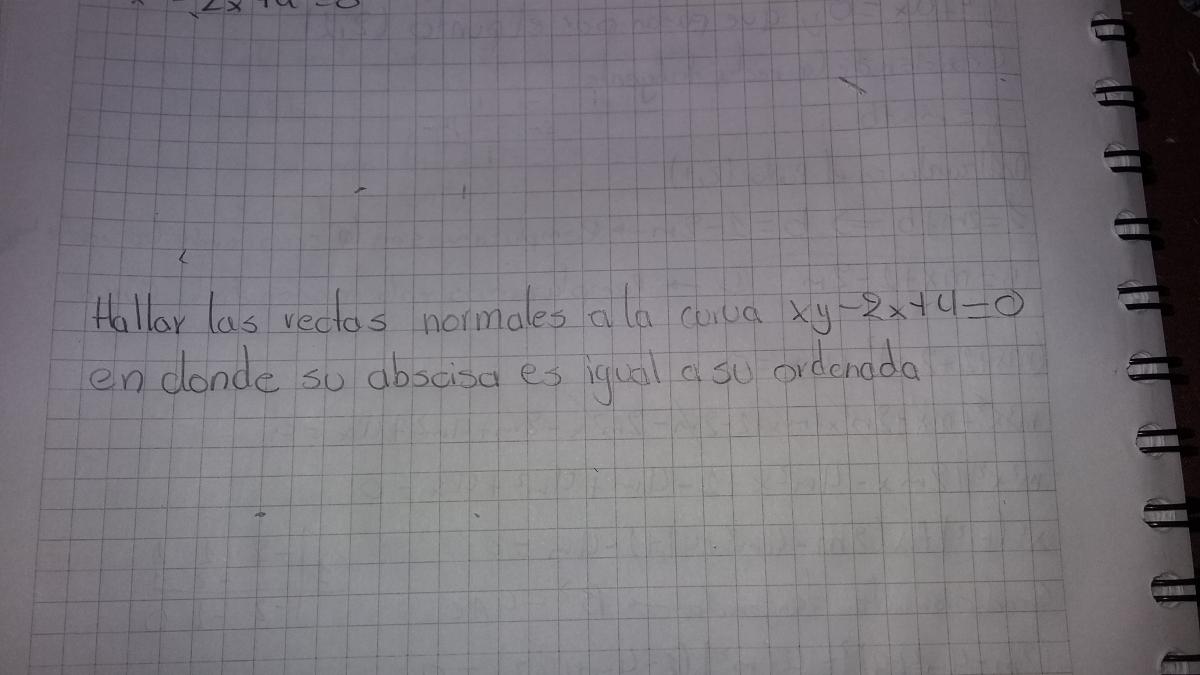 2x+4=0
Hallar las rectas normales a la curva xy-2x+4=0
en donde su abscisa es igual a su ordenada